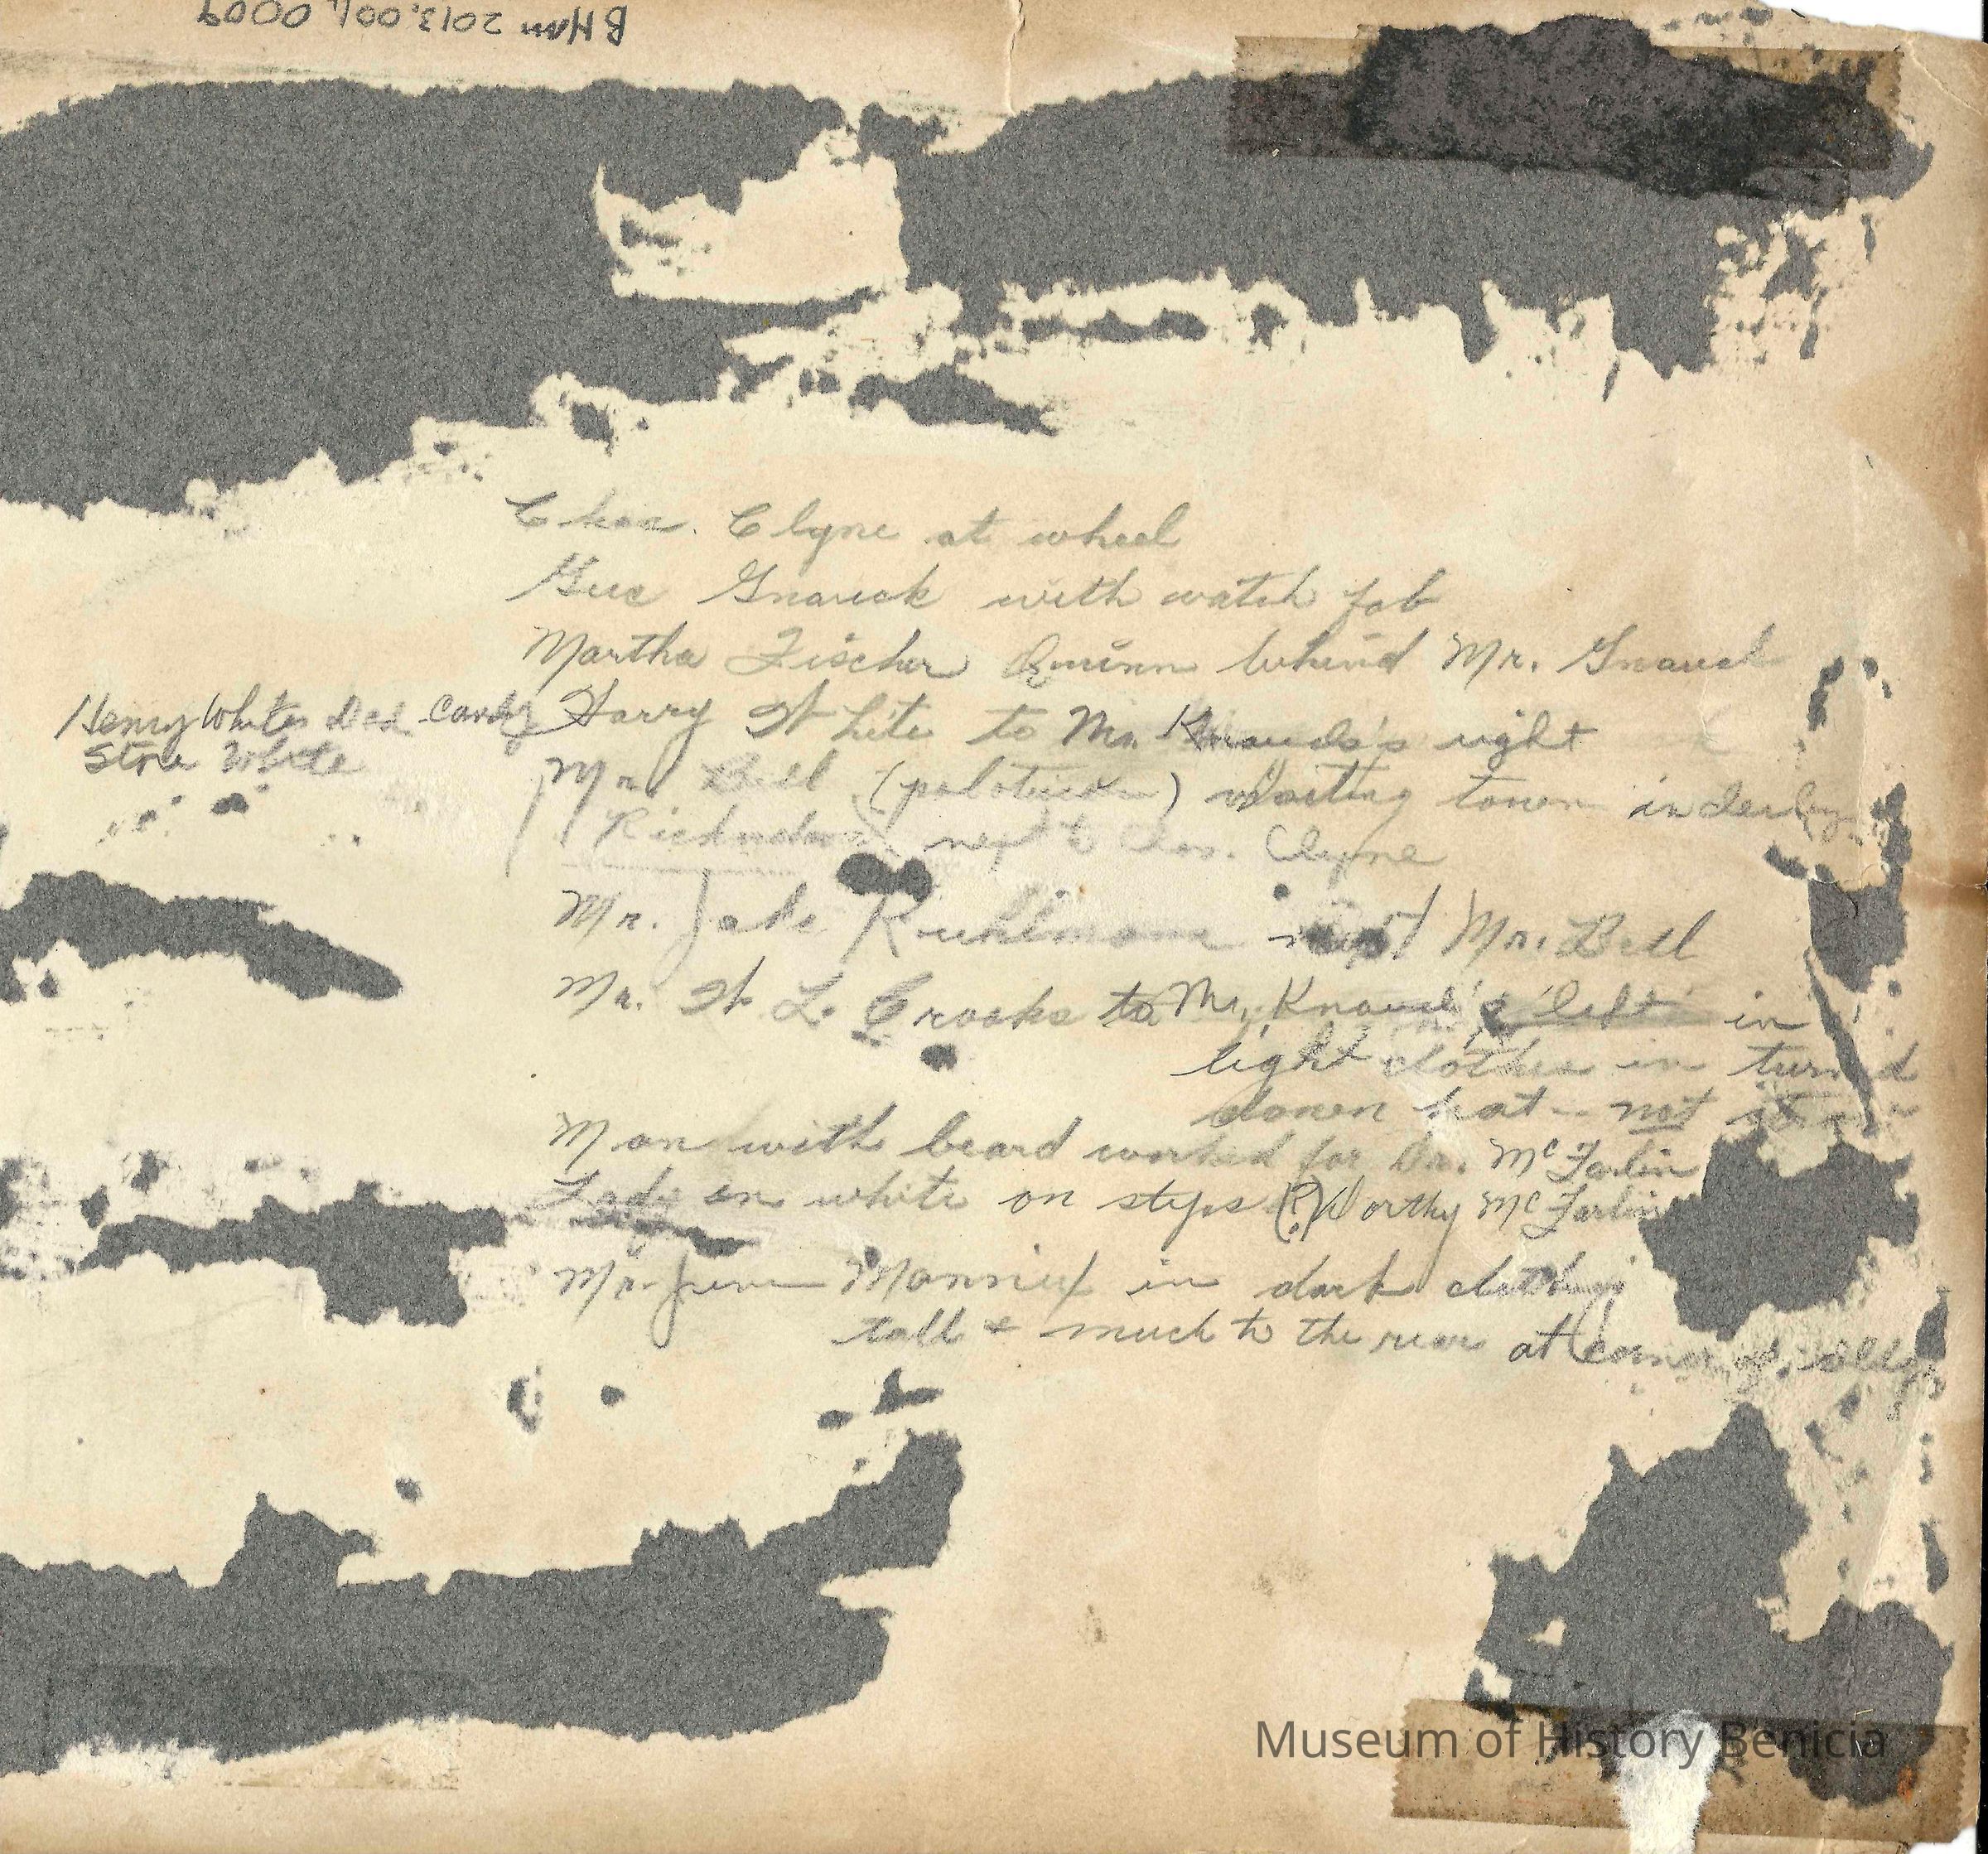 BHM 2013.001.0009
Chas. Clyne at wheel
Gus Gnauck with watch fob
Martha Fischer Quinn behind Mr. Gnauck
Henry Whites Dad Candy
Store White
Harry White to Mr. right
Mr. Bell (politician) visiting town in derby
next to Chas. Clyne
Mr. Jake Kuhlmann next Mr. Bell
Mr. W. L. Crooks to Mr. Knauck's left in
light clothes in turned
down hat -- not
Man with beard worked for Dr. McFarlin
Lady in white on steps (?) Worthy McFarlin
Mr. Mannix in dark clothing
tall & much to the rear at corner of alley
Museum of History Benicia